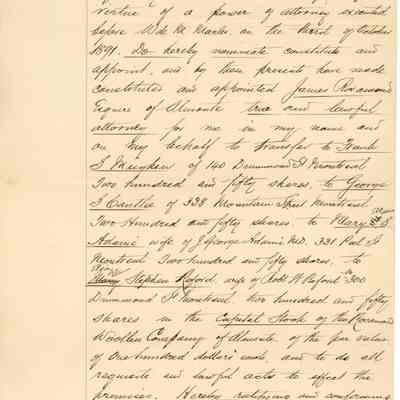 virtue of a power of attorney executed
before W. de M. Marler, on the third of October
1891. Do hereby nominate constitute and
appoint, and by these presents have made
constituted and appointed James Rosamond
Esquire of Almonte true and lawful
attorney for me in my name and
on my behalf to transfer to Frank
S Meighen of 140 Drummond St Montreal
Two hundred and fifty shares, to George
S Cantlie of 338 Mountain Street Montreal
Two Hundred and fifty shares, to Mary S
Adami wife of J George Adami M.D. 331 Peel St
Montreal Two hundred and fifty shares, to
Stephen Reford, wife of Robt W Reford 300
Drummond St Montreal, two hundred and fifty
shares in the Capital Stock of the Rosamond
Woollen Company of Almonte, of the par value
of One hundred dollars each, and to do all
requisite and lawful acts to effect the
premises. Hereby ratifying and confirming